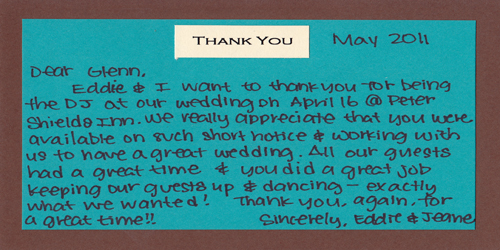 THANK YOU
May 2011
Dear Glenn,
Eddie & I want to thank you for being
the DJ at our wedding on April 16 @ Peter
Shields Inn. We really appreciate that you were
available on such short notice & working with
us to have a great wedding. All our guests
had a great time & you did a great job
keeping our guests up & dancing - exactly
what we wanted! Thank you, again, for
a great time!! Sincerely, Eddie & Jeane